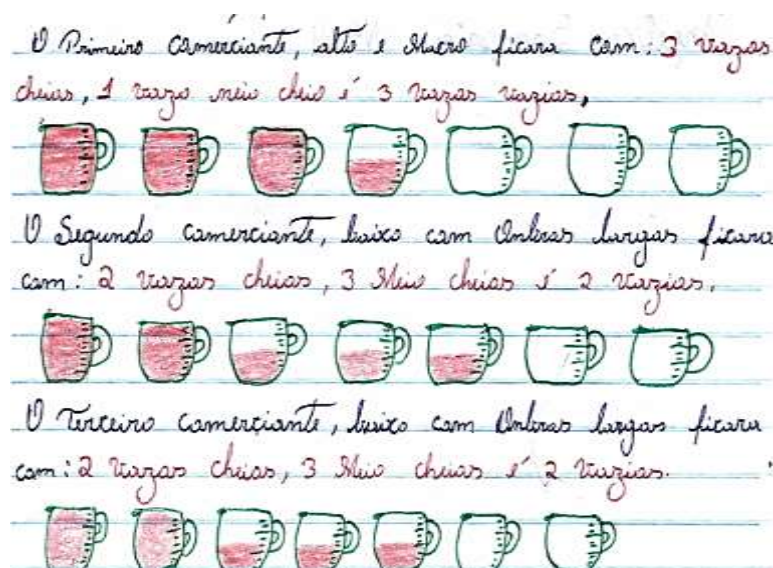 O Primeiro comerciante, alto e Macro ficara com: 3 vazos
cheios, 1 vazo meio cheio é 3 vazos vazios,
O Segundo comerciante, baixo com Onbros largos ficara
com: 2 vazos cheios, 3 Meio cheios é 2 vazios.
O Terceiro comerciante, baixo com Onbros largos ficara
com: 2 vazos cheios, 3 Meio cheios é 2 vazios.